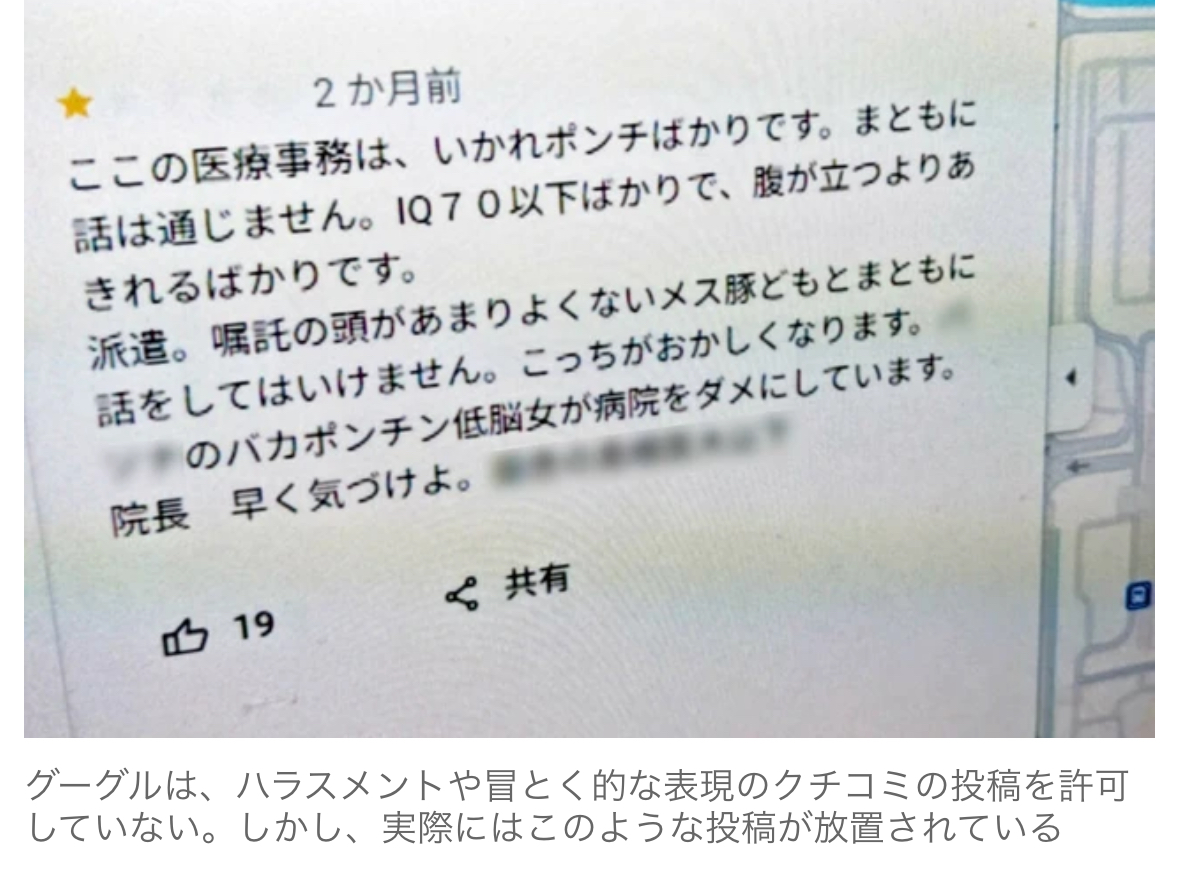 2か月前
ここの医療事務は、いかれポンチばかりです。まともに
話は通じません。IQ70以下ばかりで、腹が立つよりあ
きれるばかりです。
派遣。嘱託の頭があまりよくないメス豚どもとまともに
話をしてはいけません。こっちがおかしくなります。
のバカポンチン低脳女が病院をダメにしています。
院長　早く気づけよ。
19
共有
グーグルは、ハラスメントや冒とく的な表現のクチコミの投稿を許可
していない。しかし、実際にはこのような投稿が放置されている